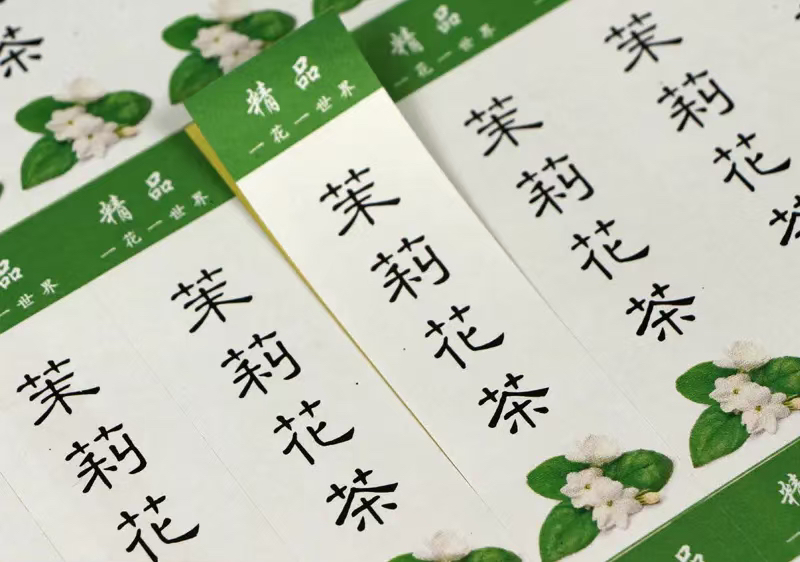 茶
精品
一花一世界
茉莉花茶
精品
一花一世界
茉莉花茶
茉莉花茶
精品
一花一世界
茉莉花茶
品
一世界
茉莉花
精
品